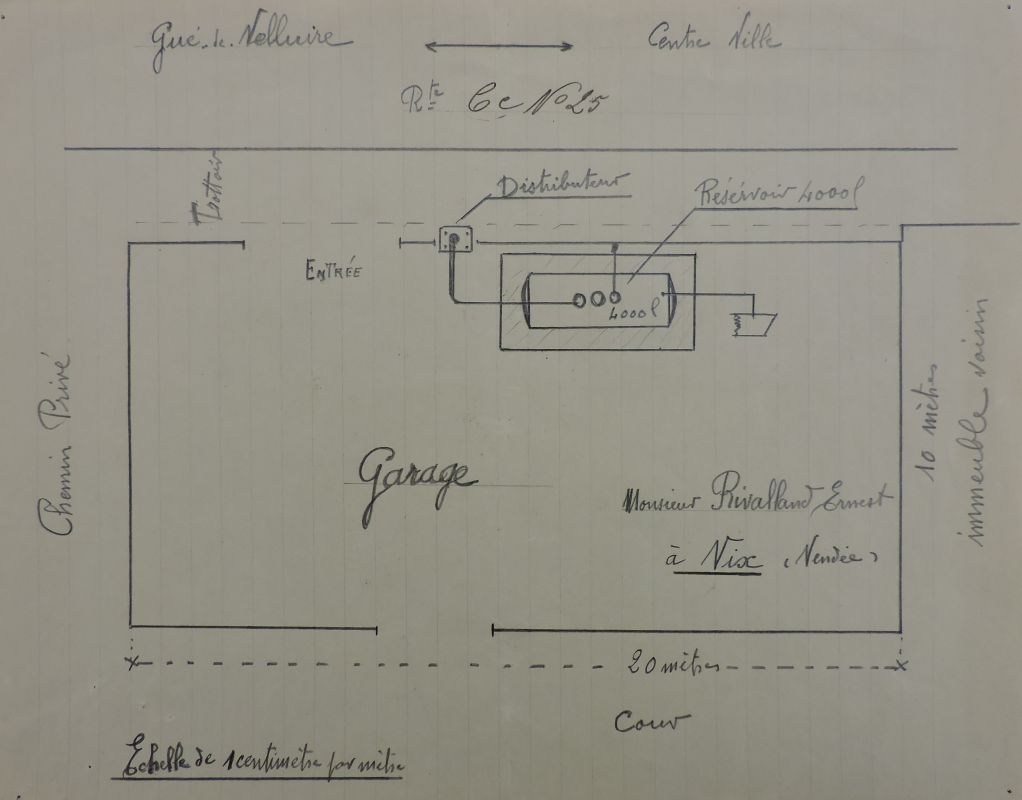 Gué-de-Velluire
Centre Ville
Rte Cc No 25
Trottoir
Distributeur
Réservoir 4000l
ENTRÉE
4000l
Chemin Privé
10 mètres
immeuble voisin
Garage
Monsieur Rivalland Ernest
à Vix (Vendée)
20 mètres
Cour
Echelle de 1 centimètre par mètre